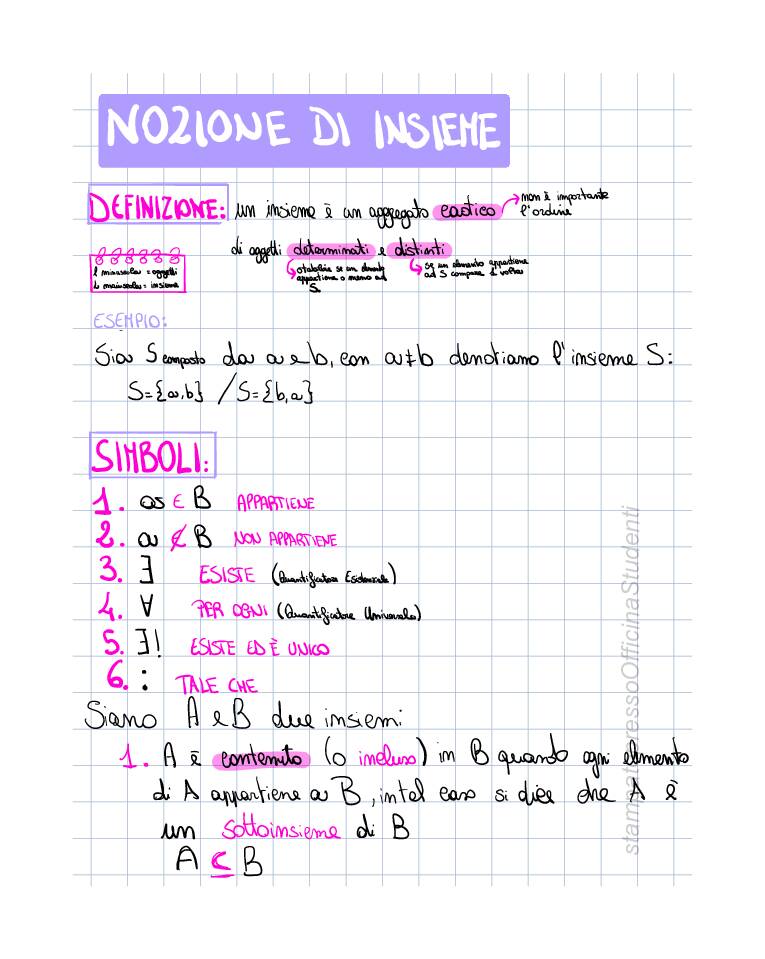 NOZIONE DI INSIEME
DEFINIZIONE: un insieme è un aggregato caotico → non è importante l'ordine
di oggetti determinati e distinti
stabilire se un elemento appartiene o meno ad S.
se un elemento appartiene ad S compare 1 volta
l minuscola = oggetti
L maiuscola = insieme
ESEMPIO:
Sia S composto da a e b, con a ≠ b denotiamo l'insieme S:
S={a,b} / S={b,a}
SIMBOLI:
1. a ∈ B APPARTIENE
2. a ∉ B NON APPARTIENE
3. ∃ ESISTE (Quantificatore Esistenziale)
4. ∀ PER OGNI (Quantificatore Universale)
5. ∃! ESISTE ED È UNICO
6. : TALE CHE
Siano A e B due insiemi
1. A è contenuto (o incluso) in B quando ogni elemento
di A appartiene a B, in tal caso si dice che A è
un sottoinsieme di B
A ⊆ B
stampatopressoOfficinaStudenti